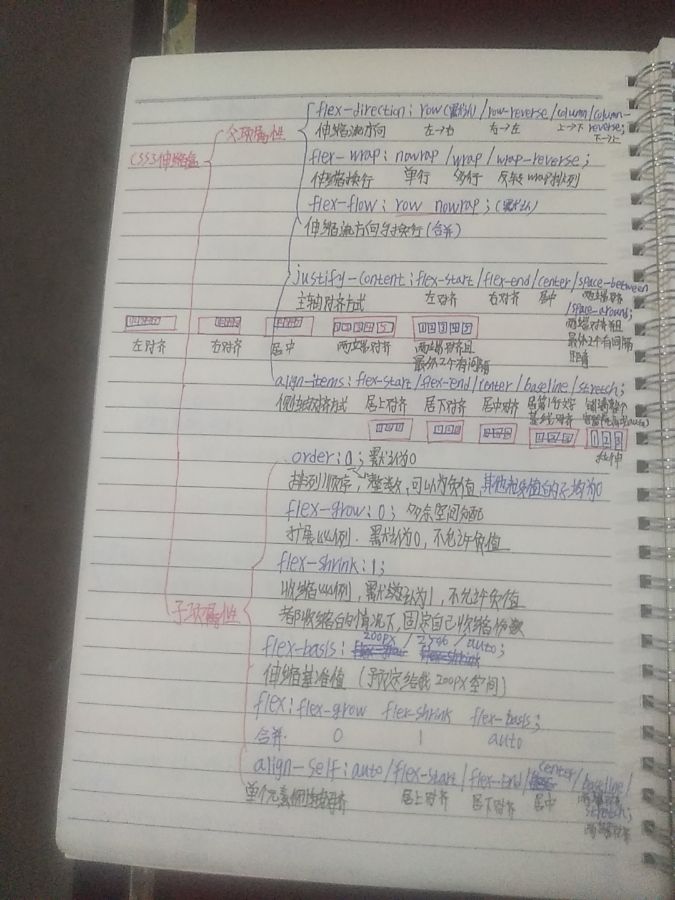 flex-direction: row(默认)/row-reverse/column/column-reverse;
伸缩流方向 左→右 右→左 上→下 下→上
CSS3伸缩盒 父项属性
flex-wrap: nowrap/wrap/wrap-reverse;
伸缩换行 单行 多行 反转wrap排列
flex-flow: row nowrap; (默认)
伸缩流方向与换行(合并)
justify-content: flex-start/flex-end/center/space-between
主轴对齐方式 左对齐 右对齐 居中 两端对齐
/space-around;
两端对齐且
最外2个有间隔
距离
1 2 3 4 5
1 2 3 4 5
左对齐 右对齐 居中 两端对齐 两端对齐且
最外2个有间隔
align-items: flex-start/flex-end/center/baseline/stretch;
侧轴对齐方式 居上对齐 居下对齐 居中对齐 居第1行文字 铺满整个
基线对齐
1 2 3
拉伸
order: 0; 默认为0
排列顺序, 整数, 可以为负值, 其他
flex-grow: 0; 多余空间分配
扩展比例. 默认为0, 不允许负值
flex-shrink: 1;
收缩比例, 默认为1, 不允许负值
子项属性
都收缩的情况下, 固定自己收缩份数
flex-basis: 200px / 25% / auto;
伸缩基准值 (预定给我200px空间)
flex: flex-grow flex-shrink flex-basis;
合并. 0 1 auto
align-self: auto/flex-start/flex-end/center/baseline/
stretch;
单个元素侧轴对齐 居上对齐 居下对齐 居中